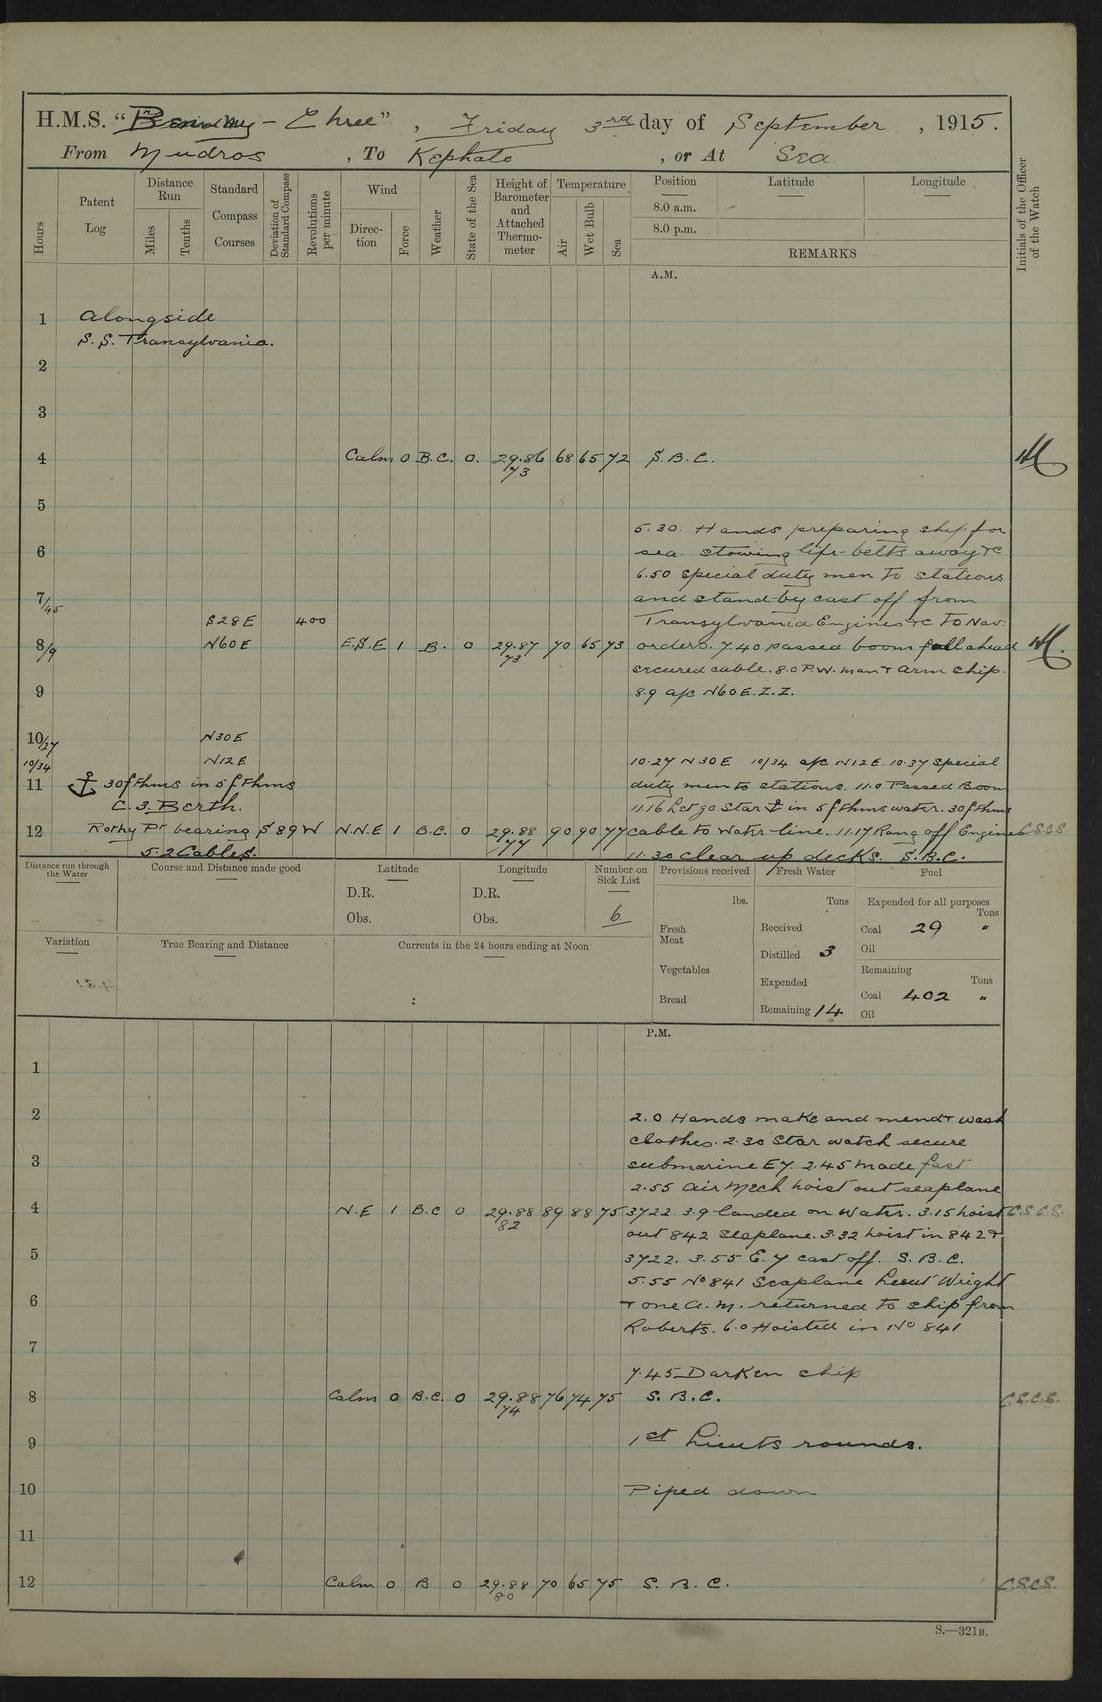 H.M.S. “Ben-my-Chree”, Friday 3rd day of September, 1915.
From Mudros, To Kephalo, or At Sea
Hours
Patent Log
Distance Run
Miles
Tenths
Standard Compass Courses
Deviation of Standard Compass
Revolutions per minute
Wind
Direction
Force
Weather
State of the Sea
Height of Barometer and Attached Thermometer
Temperature
Air
Wet Bulb
Sea
Position
Latitude
Longitude
8.0 a.m.
8.0 p.m.
REMARKS
Initials of the Officer of the Watch
A.M.
1 Alongside
S.S. Transylvania.
2
3
4 Calm 0 B.C. 0. 29.86 68 65 72 S.B.C.
73
5
5.30. Hands preparing ship for
6 sea. stowing life-belts away &c
6.50 special duty men to stations
7/45 and stand-by cast off from
S28E 400 Transylvania Engines &c to Nav:
8/9 N60E E.S.E 1 B. 0 29.87 70 65 73 orders. 7.40 passed boom full ahead
73 secured cable. 8.0 P.W. man & arm ship.
9 8.9 a/c N60E. Z.Z.
10/27 N30E
10/34 N12E 10.27 N30E 10/34 a/c N12E. 10.37 special
11 ⚓ 30fthms in 5fthms duty men to stations. 11.0 Passed Boom
C.3. Berth. 11.16 Let go Star ⚓ in 5fthms water. 30fthms
12 Rothy Pt bearing S89W N.N.E 1 B.C. 0 29.88 90 90 77 cable to water-line. 11.17 Rang off Engines C.S.C.S
5.2 Cables. 77 11.30 Clear up decks. S.B.C.
Distance run through the Water
Course and Distance made good
Latitude
D.R.
Obs.
Longitude
D.R.
Obs.
Number on Sick List
6
Provisions received
lbs.
Fresh Meat
Vegetables
Bread
Fresh Water
Tons
Received
Distilled 3
Expended
Remaining 14
Fuel
Expended for all purposes
Tons
Coal 29 "
Oil
Remaining
Tons
Coal 402 "
Oil
Variation
True Bearing and Distance
Currents in the 24 hours ending at Noon
P.M.
1
2 2.0 Hands make and mend & wash
clothes. 2.30 Star watch secure
3 submarine E7. 2.45 made fast
2.55 Air Mech hoist out seaplane
4 N.E 1 B.C 0 29.88 89 88 75 3722. 3.9 landed on water. 3.15 hoist C.S.C.S.
82 out 842 Seaplane. 3.32 hoist in 842 &
5 3722. 3.55 E.7 cast off. S.B.C.
5.55 No 841 Seaplane Lieut Wright
6 & one A.M. returned to ship from
Roberts. 6.0 Hoisted in No 841
7
7.45 Darken ship
8 Calm 0 B.C. 0 29.88 76 74 75 S.B.C. C.S.C.S.
74
9 1st Lieuts rounds.
10 Piped down
11
12 Calm 0 B 0 29.88 70 65 75 S.B.C. C.S.C.S.
80
S.—321B.